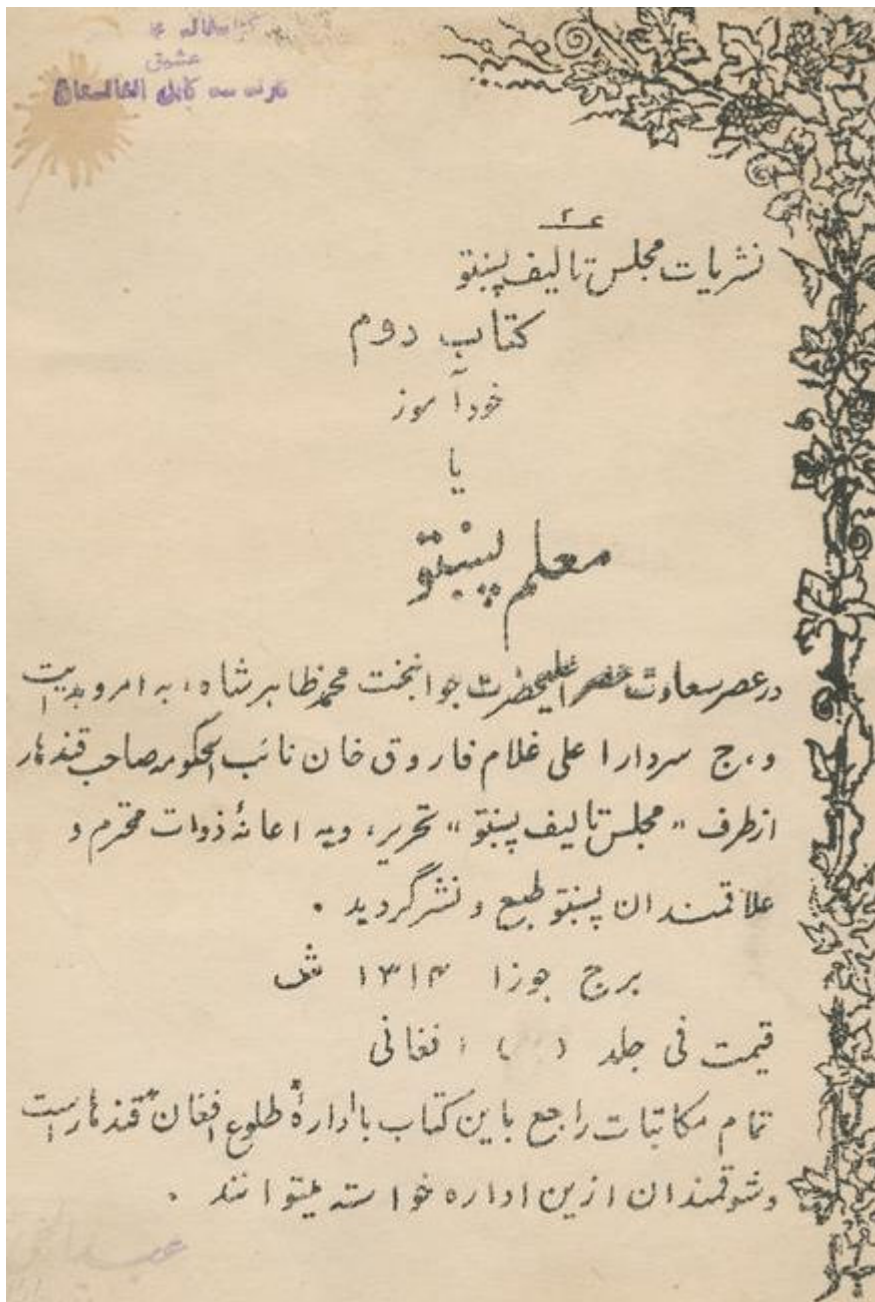 عشق
ع۲
نشریات مجلس تالیف پښتو
کتاب دوم
خود آموز
یا
معلم پښتو
در عصر سعادت حصر اعلیحضرت جوانبخت محمد ظاهر شاه، به امر و هدایت
و، ج سردار اعلی غلام فاروق خان نائب الحکومه صاحب قندهار
از طرف «مجلس تالیف پښتو» تحریر، وبه اعانهٔ ذوات محترم و
علاقمندان پښتو طبع و نشر گردید .
برج جوزا ۱۳۱۴ ش
قیمت فی جلد ( ) افغانی
تمام مکاتبات راجع باین کتاب باداره طلوع افغان قندهار است
وشوقمندان ازین اداره خواسته میتوانند .